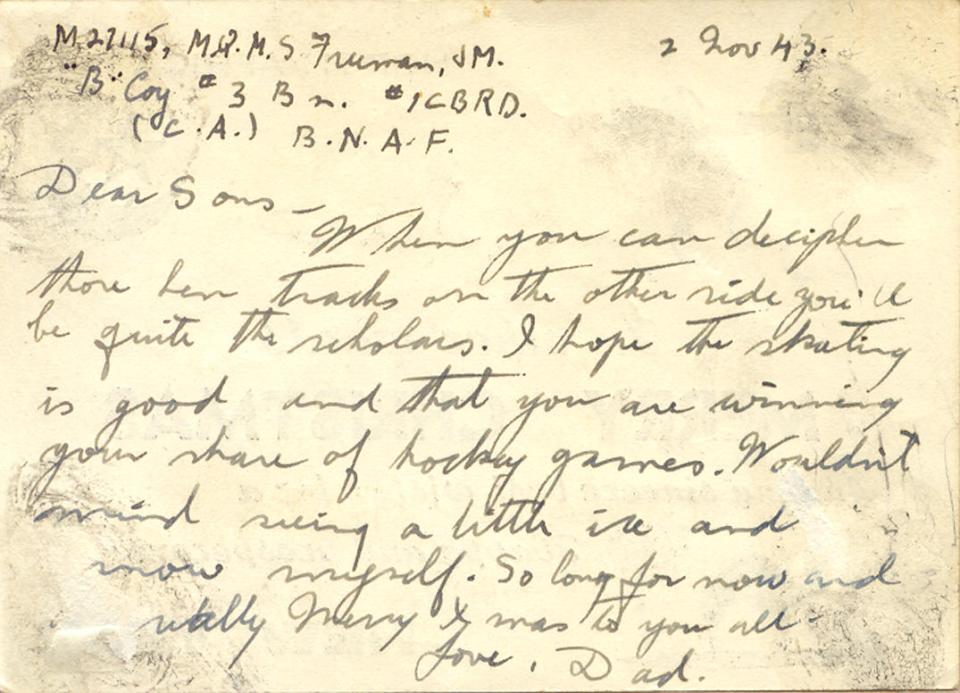 M27115, M.Q.M.S Freeman, J M.
2 Nov 43.
"B" Coy #3 Bn. #1CBRD.
(C.A.) B.N.A.F.
Dear Sons -
When you can decipher
those hen tracks on the other side you'll
be quite the scholars. I hope the skating
is good and that you are winning
your share of hockey games. Wouldn't
mind seeing a little ice and
snow myself. So long for now and
Merry Xmas to you all.
Love, Dad.